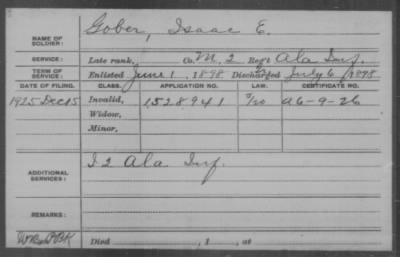 Gober, Isaac E.
NAME OF SOLDIER:
SERVICE: Late rank, Co. M, 2 Reg't Ala Inf.
TERM OF SERVICE: Enlisted June 1, 1898 Discharged July 6, 1898
DATE OF FILING. CLASS. APPLICATION NO. LAW. CERTIFICATE NO.
1925 Dec 15 Invalid, 1528941 A6-9-26
Widow,
Minor,
ADDITIONAL SERVICES: I 2 Ala Inf.
REMARKS:
Died , 1 , at